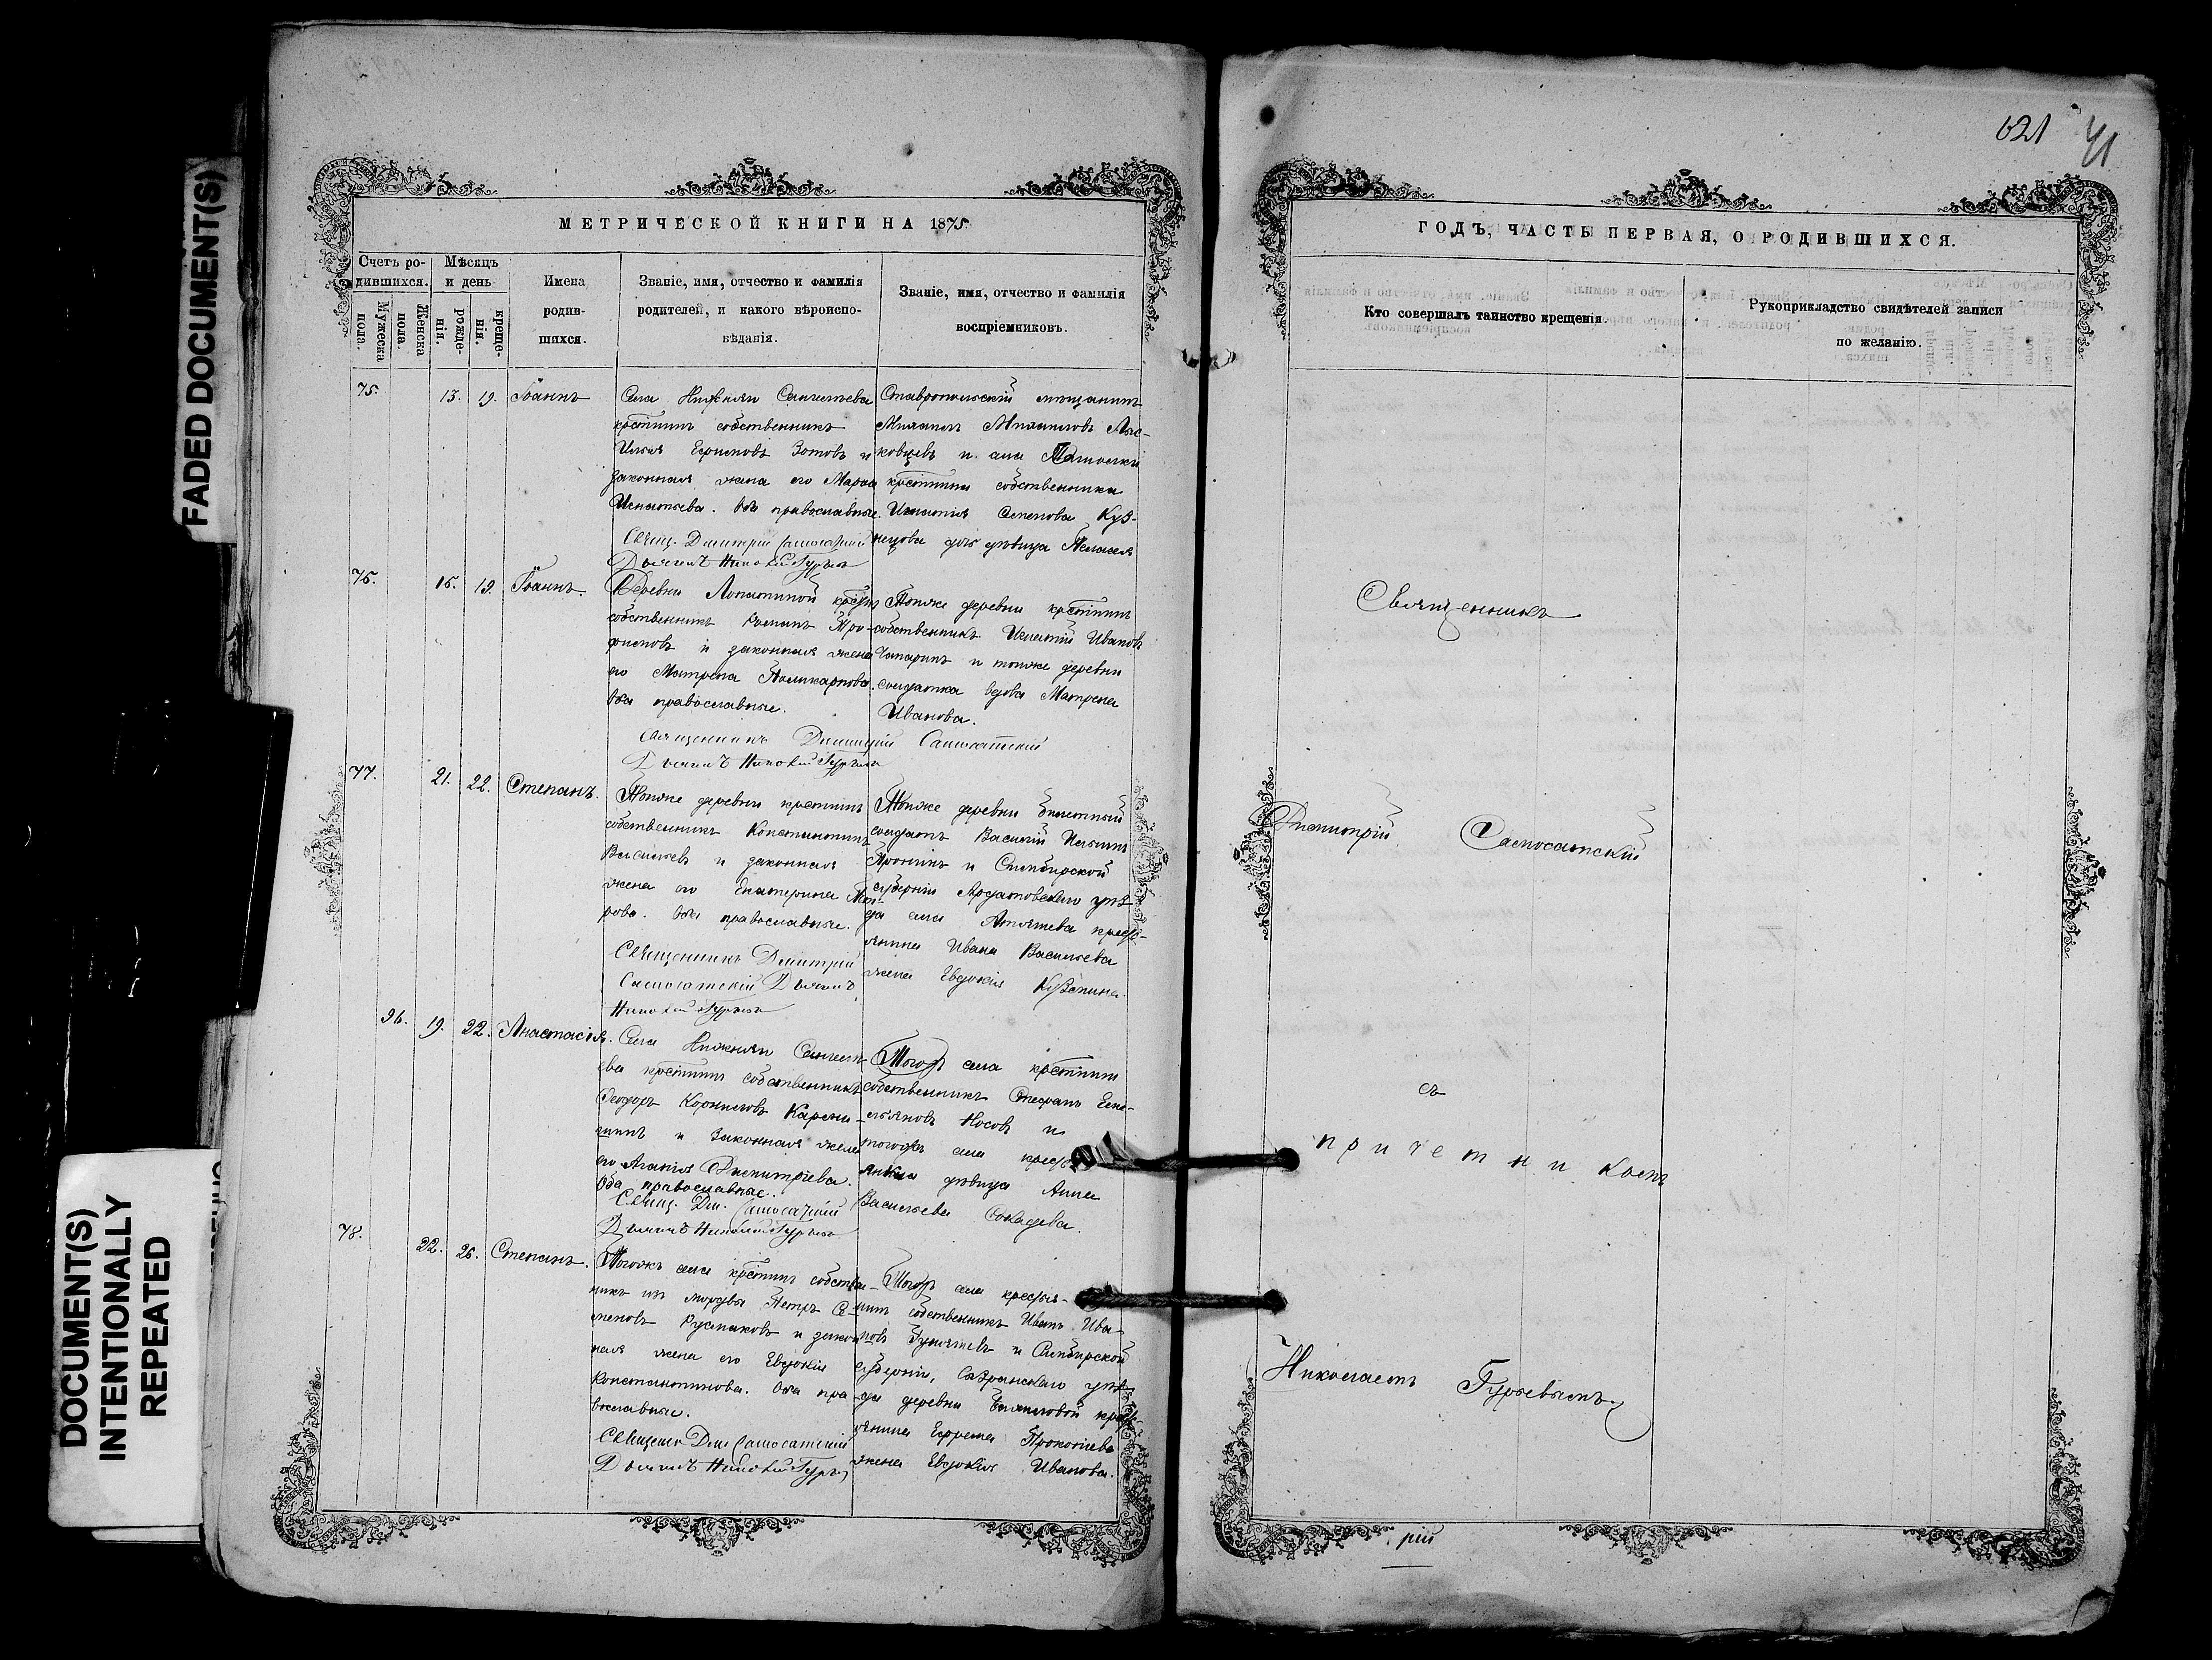 FADED DOCUMENT(S)
DOCUMENT(S)
INTENTIONALLY
REPEATED
МЕТРИЧЕСКОЙ КНИГИ НА 1875.
Счетъ ро-
дившихся.
Мужеска
пола.
Женска
пола.
Мѣсяцъ
и день
рожде-
нія.
креще-
нія.
Имена
родив-
шихся.
Званіе, имя, отчество и фамилія
родителей, и какого вѣроиспо-
вѣданія.
Званіе, имя, отчество и фамилія
воспріемниковъ.
75. 13. 19. Іоаннъ
Села Нижняго
крестнинъ собственникъ
Илья Ефимовъ Зотовъ и
законная жена его Марѳа
Игнатьева. Оба православные.
Свящ. Димитрій Самосатскій
Дьячекъ Николай Гурьевъ
Ставропольскій мещанинъ
Михаилъ Михаиловъ Лыс-
ковцевъ и села
крестнина собственника
Игнатія Семенова Куз-
нецова дочь дѣвица Пелагея
76. 15. 19. Іоаннъ.
Деревни Лопатиной
собственникъ Романъ Тро-
фимовъ и законная жена
его Матрена Поликарпова.
Оба православные.
Священникъ Димитрій Самосатскій
Дьячекъ Николай Гурьевъ
Тояже деревни крестнинъ
собственникъ Игнатій Ивановъ
Чапаринъ и тояже деревни
солдатка вдова Матрена
Иванова.
77. 21. 22. Степанъ.
Тояже деревни крестнинъ
собственникъ Константинъ
Васильевъ и законная
жена его Екатерина
рова. Оба православные.
Священникъ Димитрій
Самосатскій Дьячекъ
Николай Гурьевъ
Тояже деревни билетный
солдатъ Василій Ильинъ
Пронинъ и Симбирской
губерніи Ардатовскаго уѣз-
да села Атяшева кресть-
янина Ивана Васильева
жена Евдокія Кузмина.
96. 19. 22. Анастасія.
Села Нижняго
ева крестнинъ собственникъ
Ѳеодоръ Корниловъ Каре
шинъ и законная жена
его Агаѳія Димитріева.
Оба православные.
Свящ. Дм. Самосатскій
Дьячекъ Николай Гурьевъ
Тогожъ села крестнинъ
собственникъ Стефанъ Еме-
льяновъ Носовъ и
тогожъ села кресть
янка дѣвица Анна
Васильева
78. 22. 26. Степанъ.
Тогожъ села крестнинъ собствен-
никъ изъ мордвы Петръ Се-
меновъ Русмаковъ и закон-
ная жена его Евдокія
Константинова. Оба пра-
вославные.
Священ Дим Самосатскій
Дьячекъ Николай Гурьевъ
Тогожъ села крестья-
нинъ собственникъ Иванъ Ива-
новъ и Симбирской
губерніи, Сызранскаго уѣз-
да деревни кресть-
янина Ефрема Прокопіева
жена Евдокія Иванова.
621 41
ГОДЪ, ЧАСТЬ ПЕРВАЯ, О РОДИВШИХСЯ.
Кто совершалъ таинство крещенія.
Рукоприкладство свидѣтелей записи
по желанію.
Священникъ
Димитрій Самосатскій
съ
причетникомъ
Николаемъ Гурьевымъ.
рій